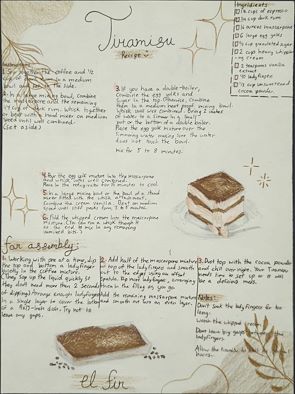 Tiramisu
Recipe
Ingredients:
1½ cup of espresso
¼ cup dark rum
6 large egg yolks
½ cup granulated sugar
2 cups heavy whipping
cream
2 teaspoons vanilla
extract
40 ladyfingers
unsweetened
cocoa powder.
Instructions:
the coffee and ½
in a medium
bowl and set to the side.
2. In a large mixing bowl, combine
the mascarpone and the remaining
¼ cup of dark rum, whisk together
or beat with a hand mixer on medium
until well combined.
(set aside)
3. If you have a double-boiler,
combine the egg yolks and
sugar in the top. Otherwise, combine
them in a medium heat proof mixing bowl.
Whisk until well combined. Bring 2 inches
of water to a simmer in a small
pot or the bottom of a double boiler.
Place the egg yolk mixture over the
simmering water making sure the water
does not touch the bowl.
Mix for 5 to 8 minutes.
4. Pour the egg yolk mixture into the mascarpone
and whisk until well combined.
Place in the refrigerator for 15 minutes to cool
5. In a large mixing bowl or the bowl of a stand
mixer fitted with the whisk attachment,
combine the cream vanilla. Beat on medium
speed until peaks form 3 to 5 minutes
6. Fold the whipped cream into the mascarpone
mixture. (You can use a whisk though it
at the end to mix in any remaining
bits.)
For assembly:
1. Working with one at a time, dip
the top and bottom a ladyfinger
quickly in the coffee mixture.
They soak up the liquid quickly so
they don't need more than 2 seconds
of dipping. Arrange enough ladyfingers
in a single layer to cover the bottom
of a 9x13-inch dish. Try not to
leave any gaps.
2. Add half of the mascarpone mixture
on top of the ladyfingers and smooth
out to the edges using an offset
spatula. Dip more ladyfingers, arranging
them in the filling as you go.
Add the remaining mascarpone mixture
and smooth out into an even layer.
3. Dust top with the cocoa powder
and chill overnight. Your Tiramisu
be a delicious mess.
Notes:
Don't soak the ladyfingers for too
long.
the whipped cream.
Don't leave big gaps
ladyfingers
Allow the tiramisu to
el fin